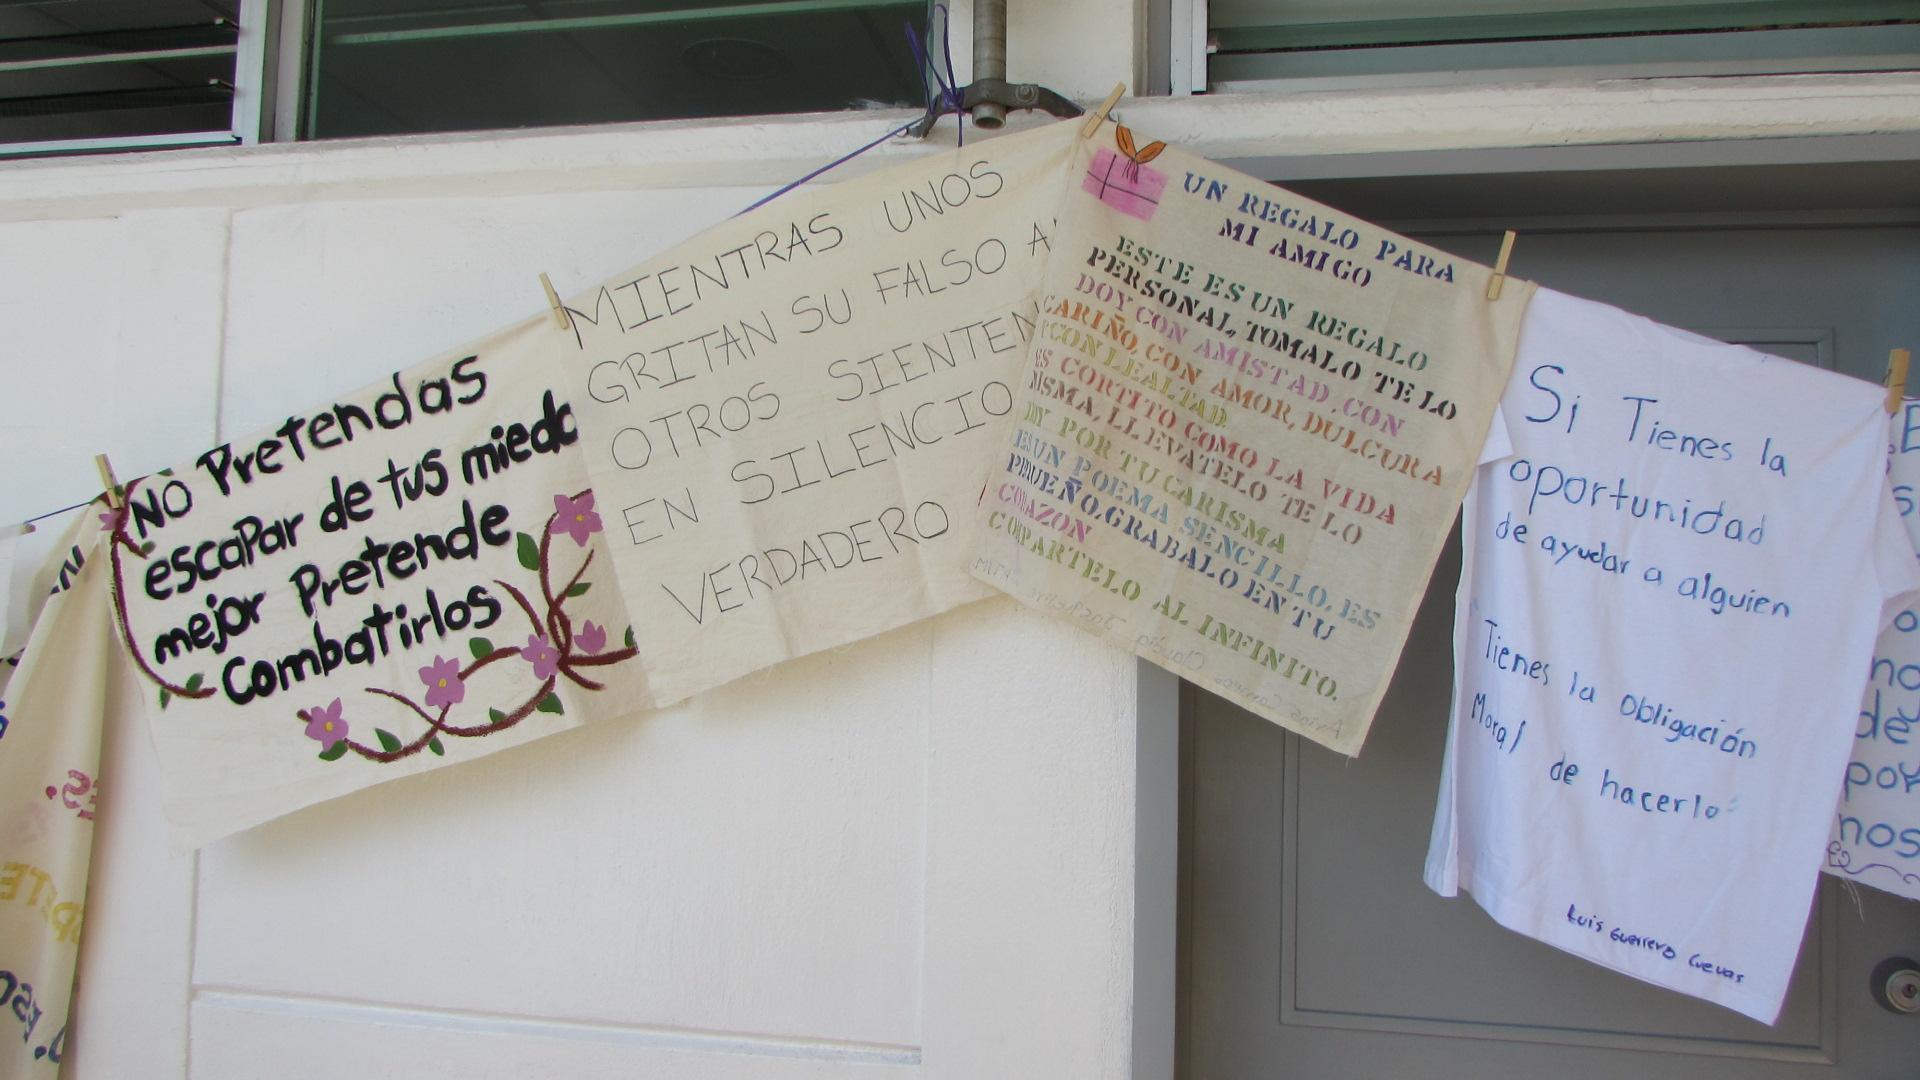 NO Pretendas
escapar de tus miedo
mejor Pretende
Combatirlos
MIENTRAS UNOS
GRITAN SU FALSO A
OTROS SIENTEN
EN SILENCIO
VERDADERO
UN REGALO PARA
MI AMIGO
ESTE ES UN REGALO
PERSONAL, TOMALO TE LO
DOY CON AMISTAD, CON
CARIÑO, CON AMOR, DULCURA
CON LEALTAD.
ES CORTITO COMO LA VIDA
MISMA, LLEVATELO TE LO
DOY POR TU CARISMA
ES UN POEMA SENCILLO, ES
PEQUEÑO, GRABALO EN TU
CORAZON
COMPARTELO AL INFINITO.
Si Tienes la
oportunidad
de ayudar a alguien
"Tienes la obligación
Moral de hacerlo"
Luis Guerrero Cuevas
no
dec
por
nos